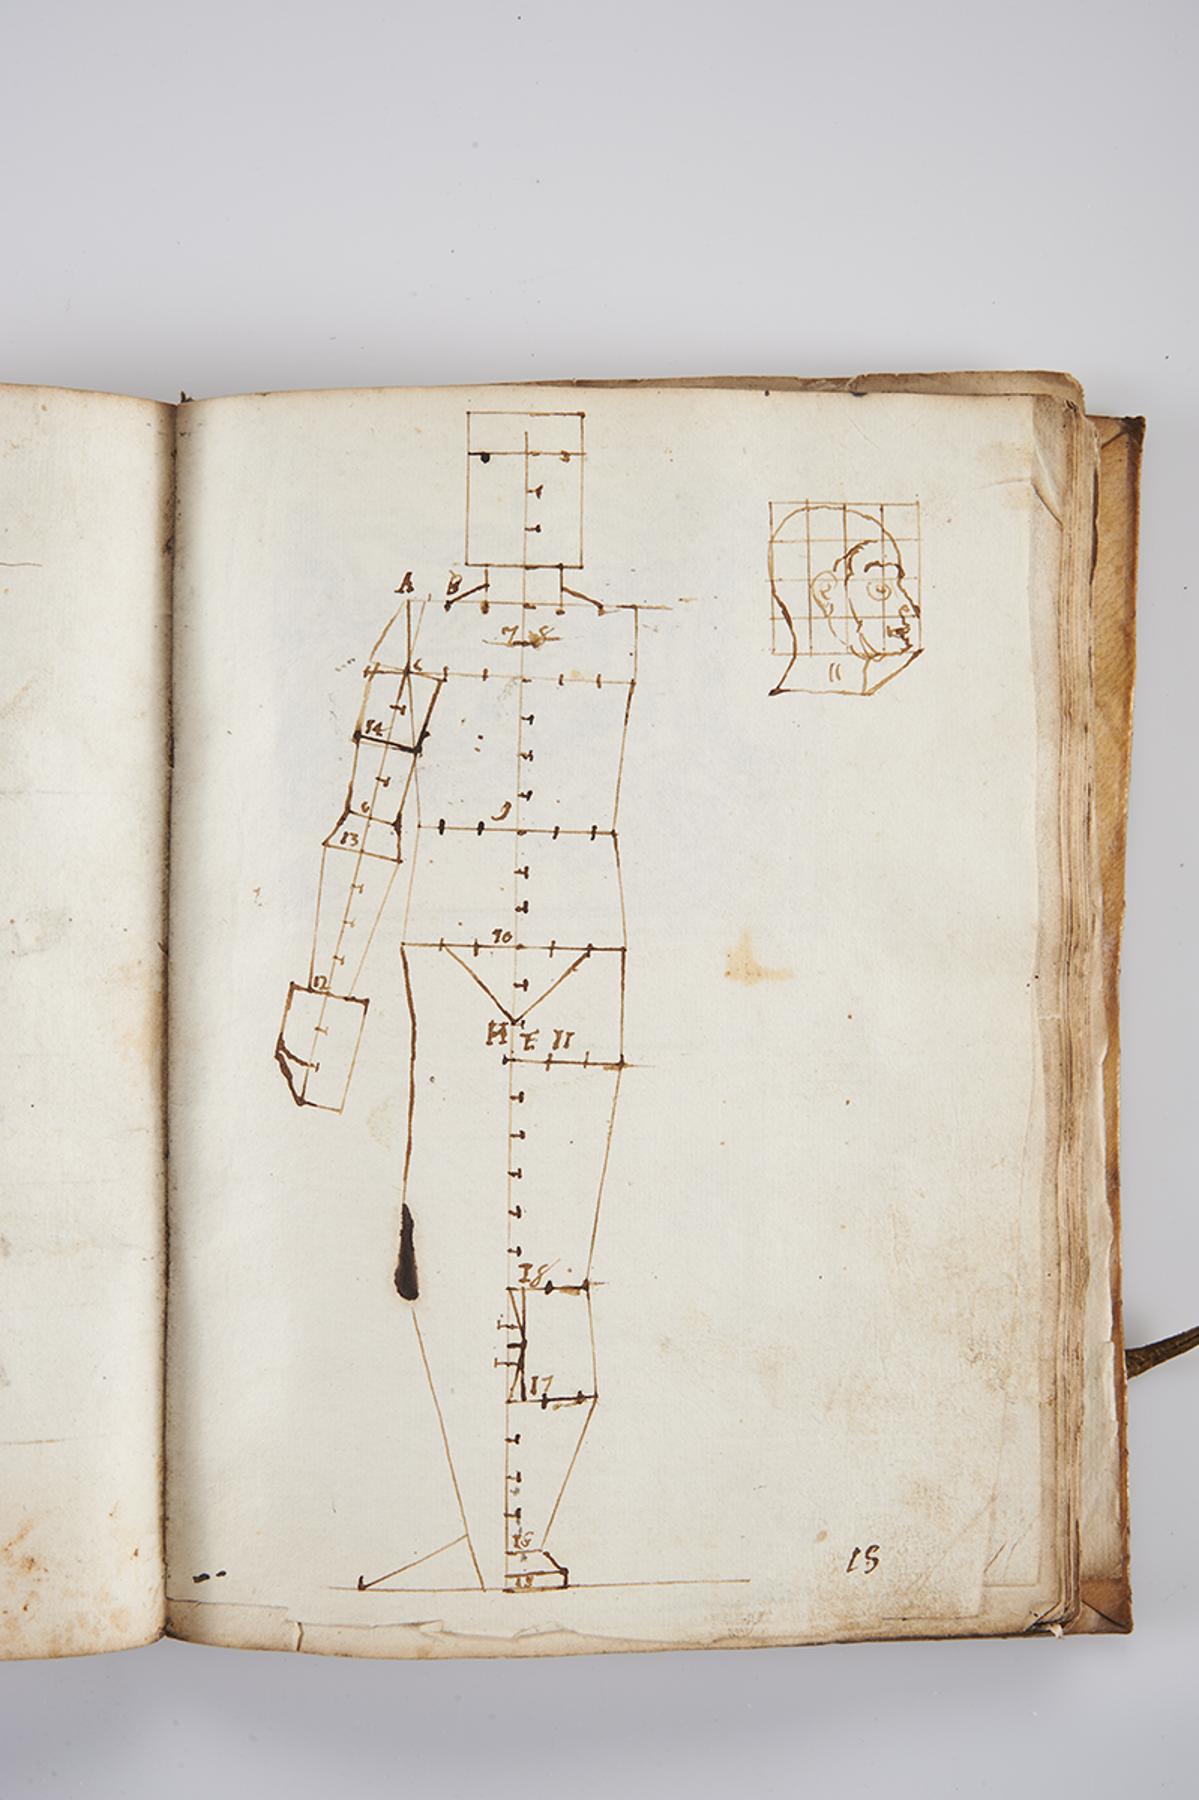 A B
7 8
6
14
9
6
13
10
12
H E 11
18
17
16
15
15